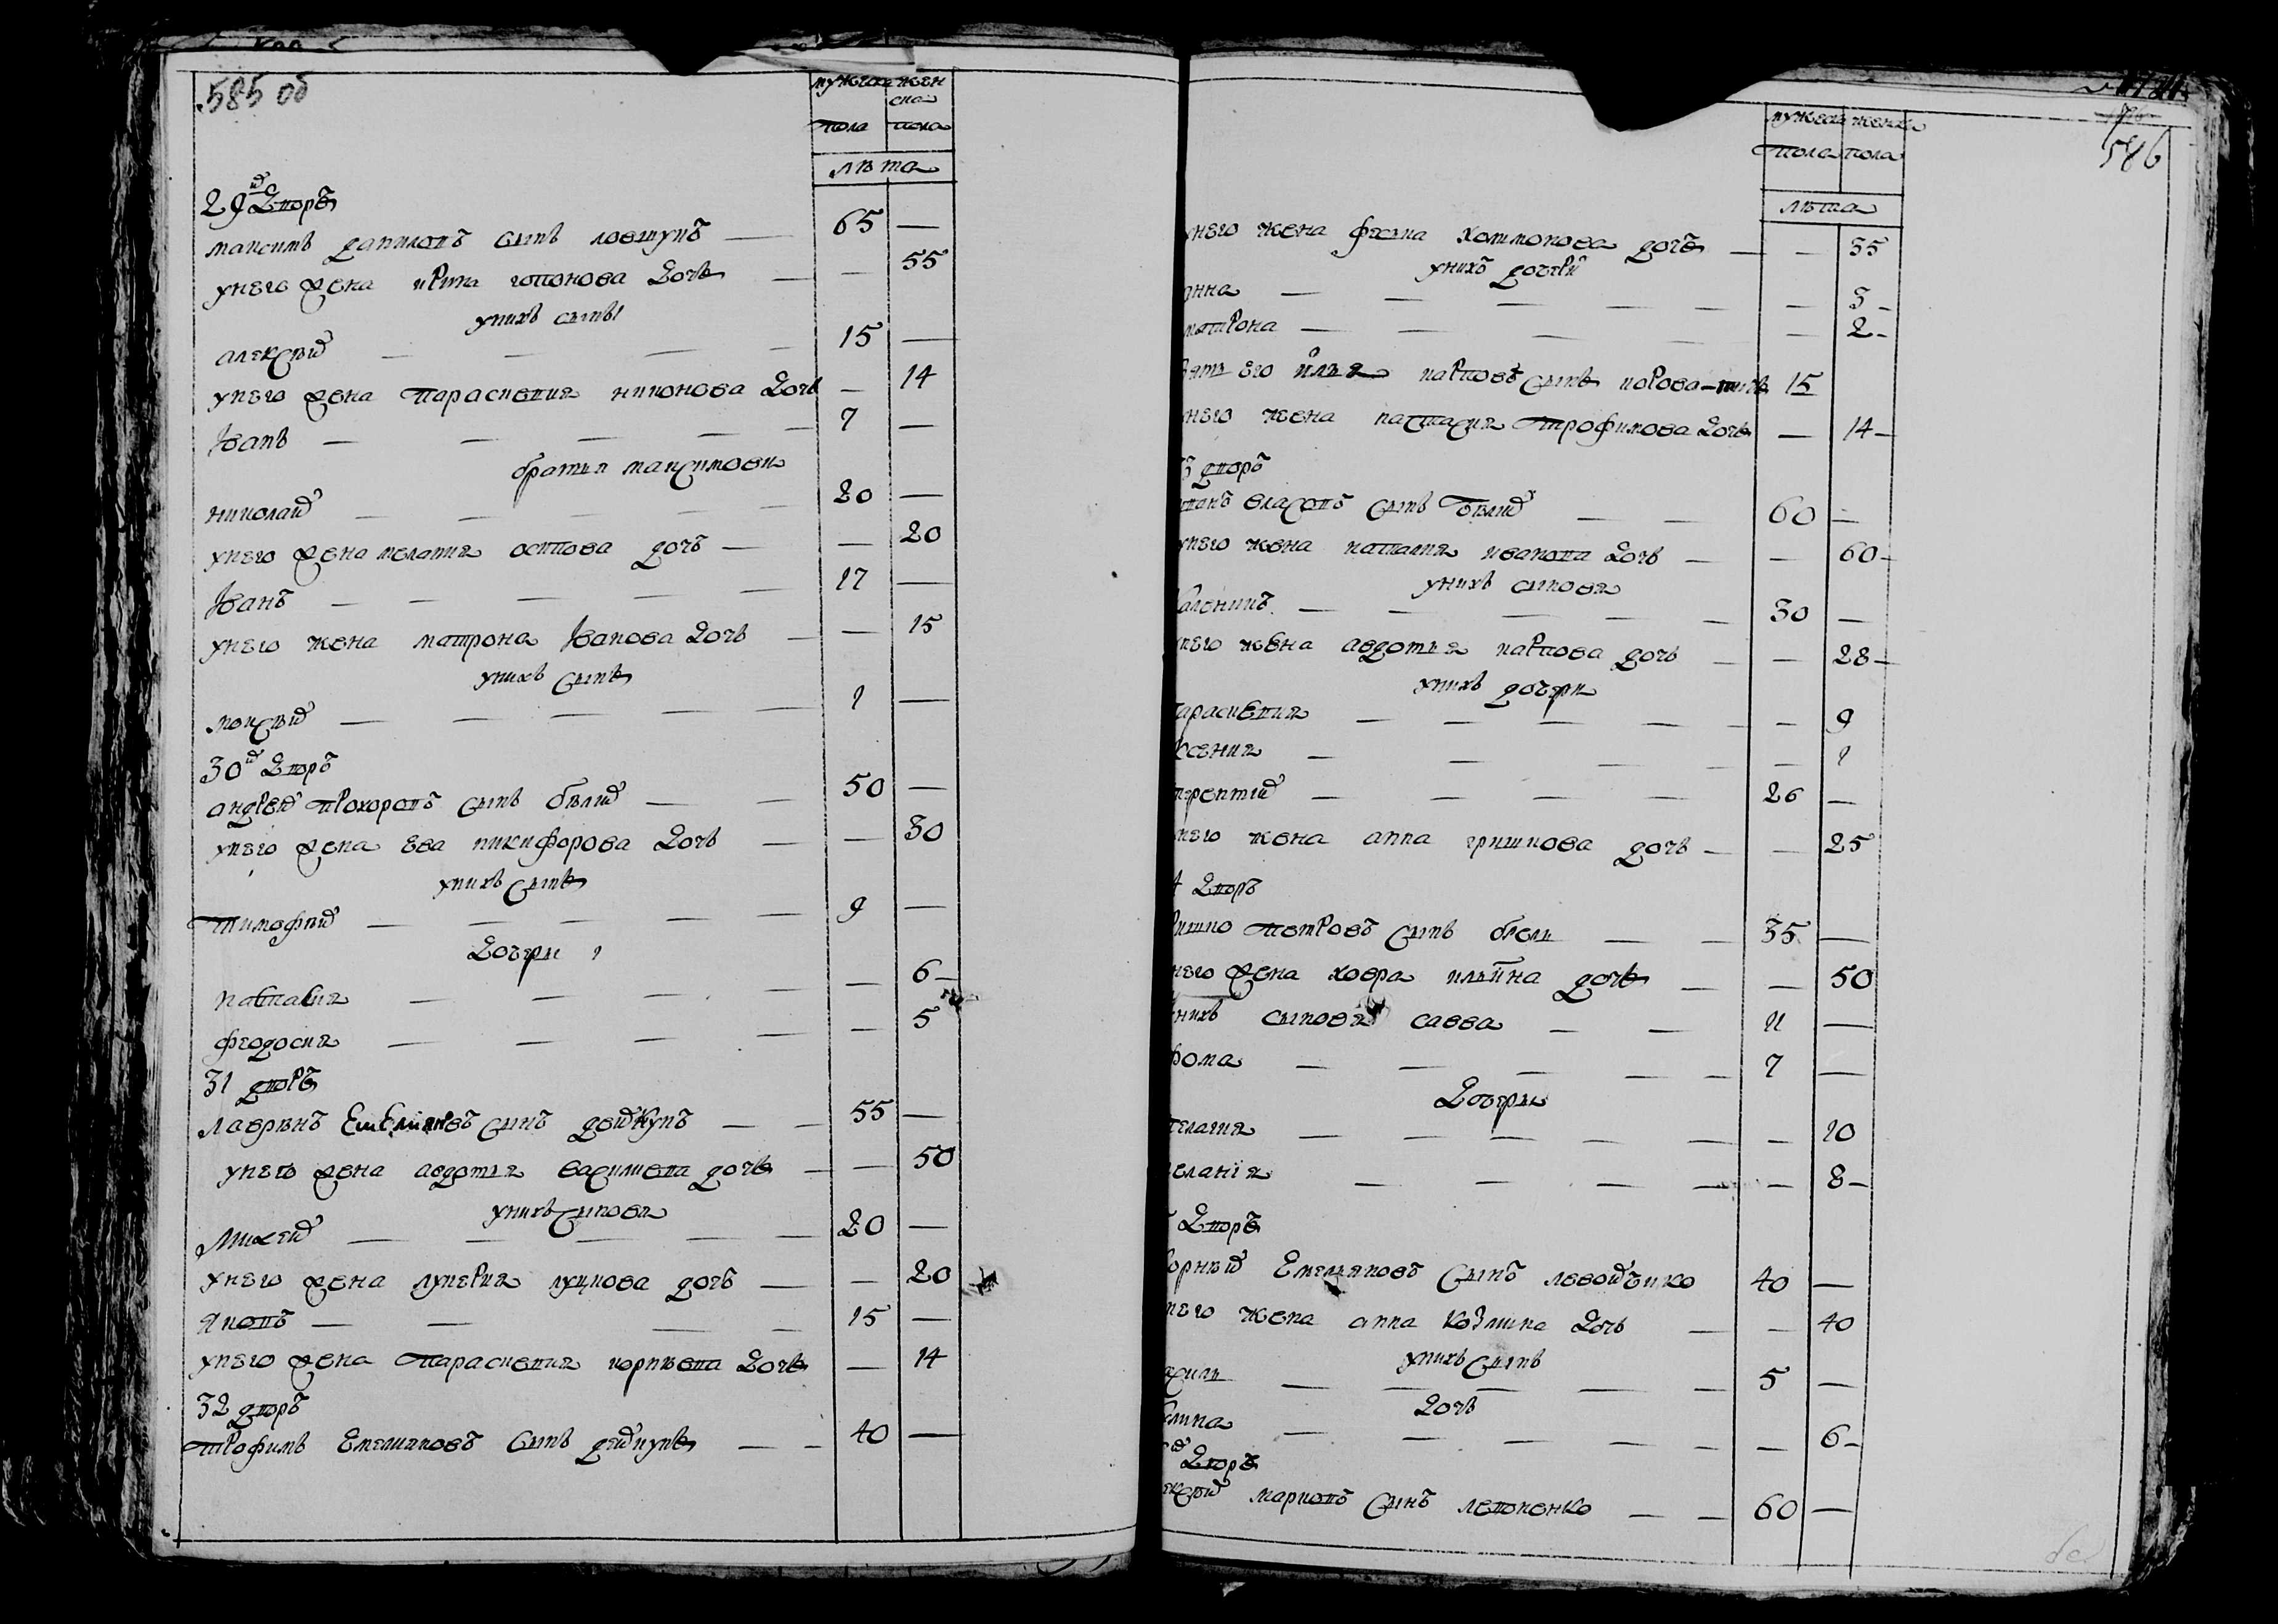 585 об
мужска жен
ска
пола пола
лѣта
29й Дворъ
максимъ даниловъ сынъ ловшунъ — 65 —
унего жена ирина гопонова дочь — — 55
унихъ сыны
алексѣй — 15 —
унего жена парасковия никонова дочь — 14
Іванъ — 7 —
братья максимови
николай — 20 —
унего жена мелания осипова дочь — — 20
Іванъ — 17 —
унего жена матрона Іванова дочь — — 15
унихъ сынъ
моисѣй — 1 —
30й дворъ
андрей прохоровъ сынъ бѣлий — 50 —
унего жена ева никифорова дочь — — 30
унихъ сынъ
тимофѣй — 9 —
дочери
настасия — — 6 —
феодосия — — 5
31 дворъ
лавринъ Емельяновъ синъ дейкунъ — 55 —
унего жена авдотья василиева дочь — — 50
унихъ сыновя
михей — 20 —
унего жена лукерия луцкова дочь — — 20
яковъ — 15 —
унего жена парасковия корнѣева дочь — 14
32 дворъ
трофимъ Емельяновъ сынъ дейкунъ — 40 —
586
мужеска женска
пола пола
лѣта
унего жена фекла дочь — — 35
унихъ дочери
анна — — 5 —
матрона — — 2 —
зять его илья карповъ сынъ 15
унего жена настасия трофимова дочь — 14 —
3 дворъ
власовъ сынъ бѣлий — 60 —
унего жена наталия иванова дочь — — 60 —
унихъ сыновя
каленикъ — 30 —
унего жена авдотья карпова дочь — — 28 —
унихъ дочери
парасковия — — 9
ксения — — 1
терентий — 26 —
унего жена анна гришкова дочь — — 25
4 дворъ
петровъ сынъ — 35 —
него жена ховра ильина дочь — — 50
унихъ сыновя савва — 11 —
фома — 7 —
Дочери
пелагия — — 10
меланія — — 8 —
дворъ
корнѣй Емельяновъ сынъ 40 —
него жена анна козмина дочь — — 40
унихъ сынъ
5 —
дочь
— — 6 —
й дворъ
марковъ синъ — 60 —